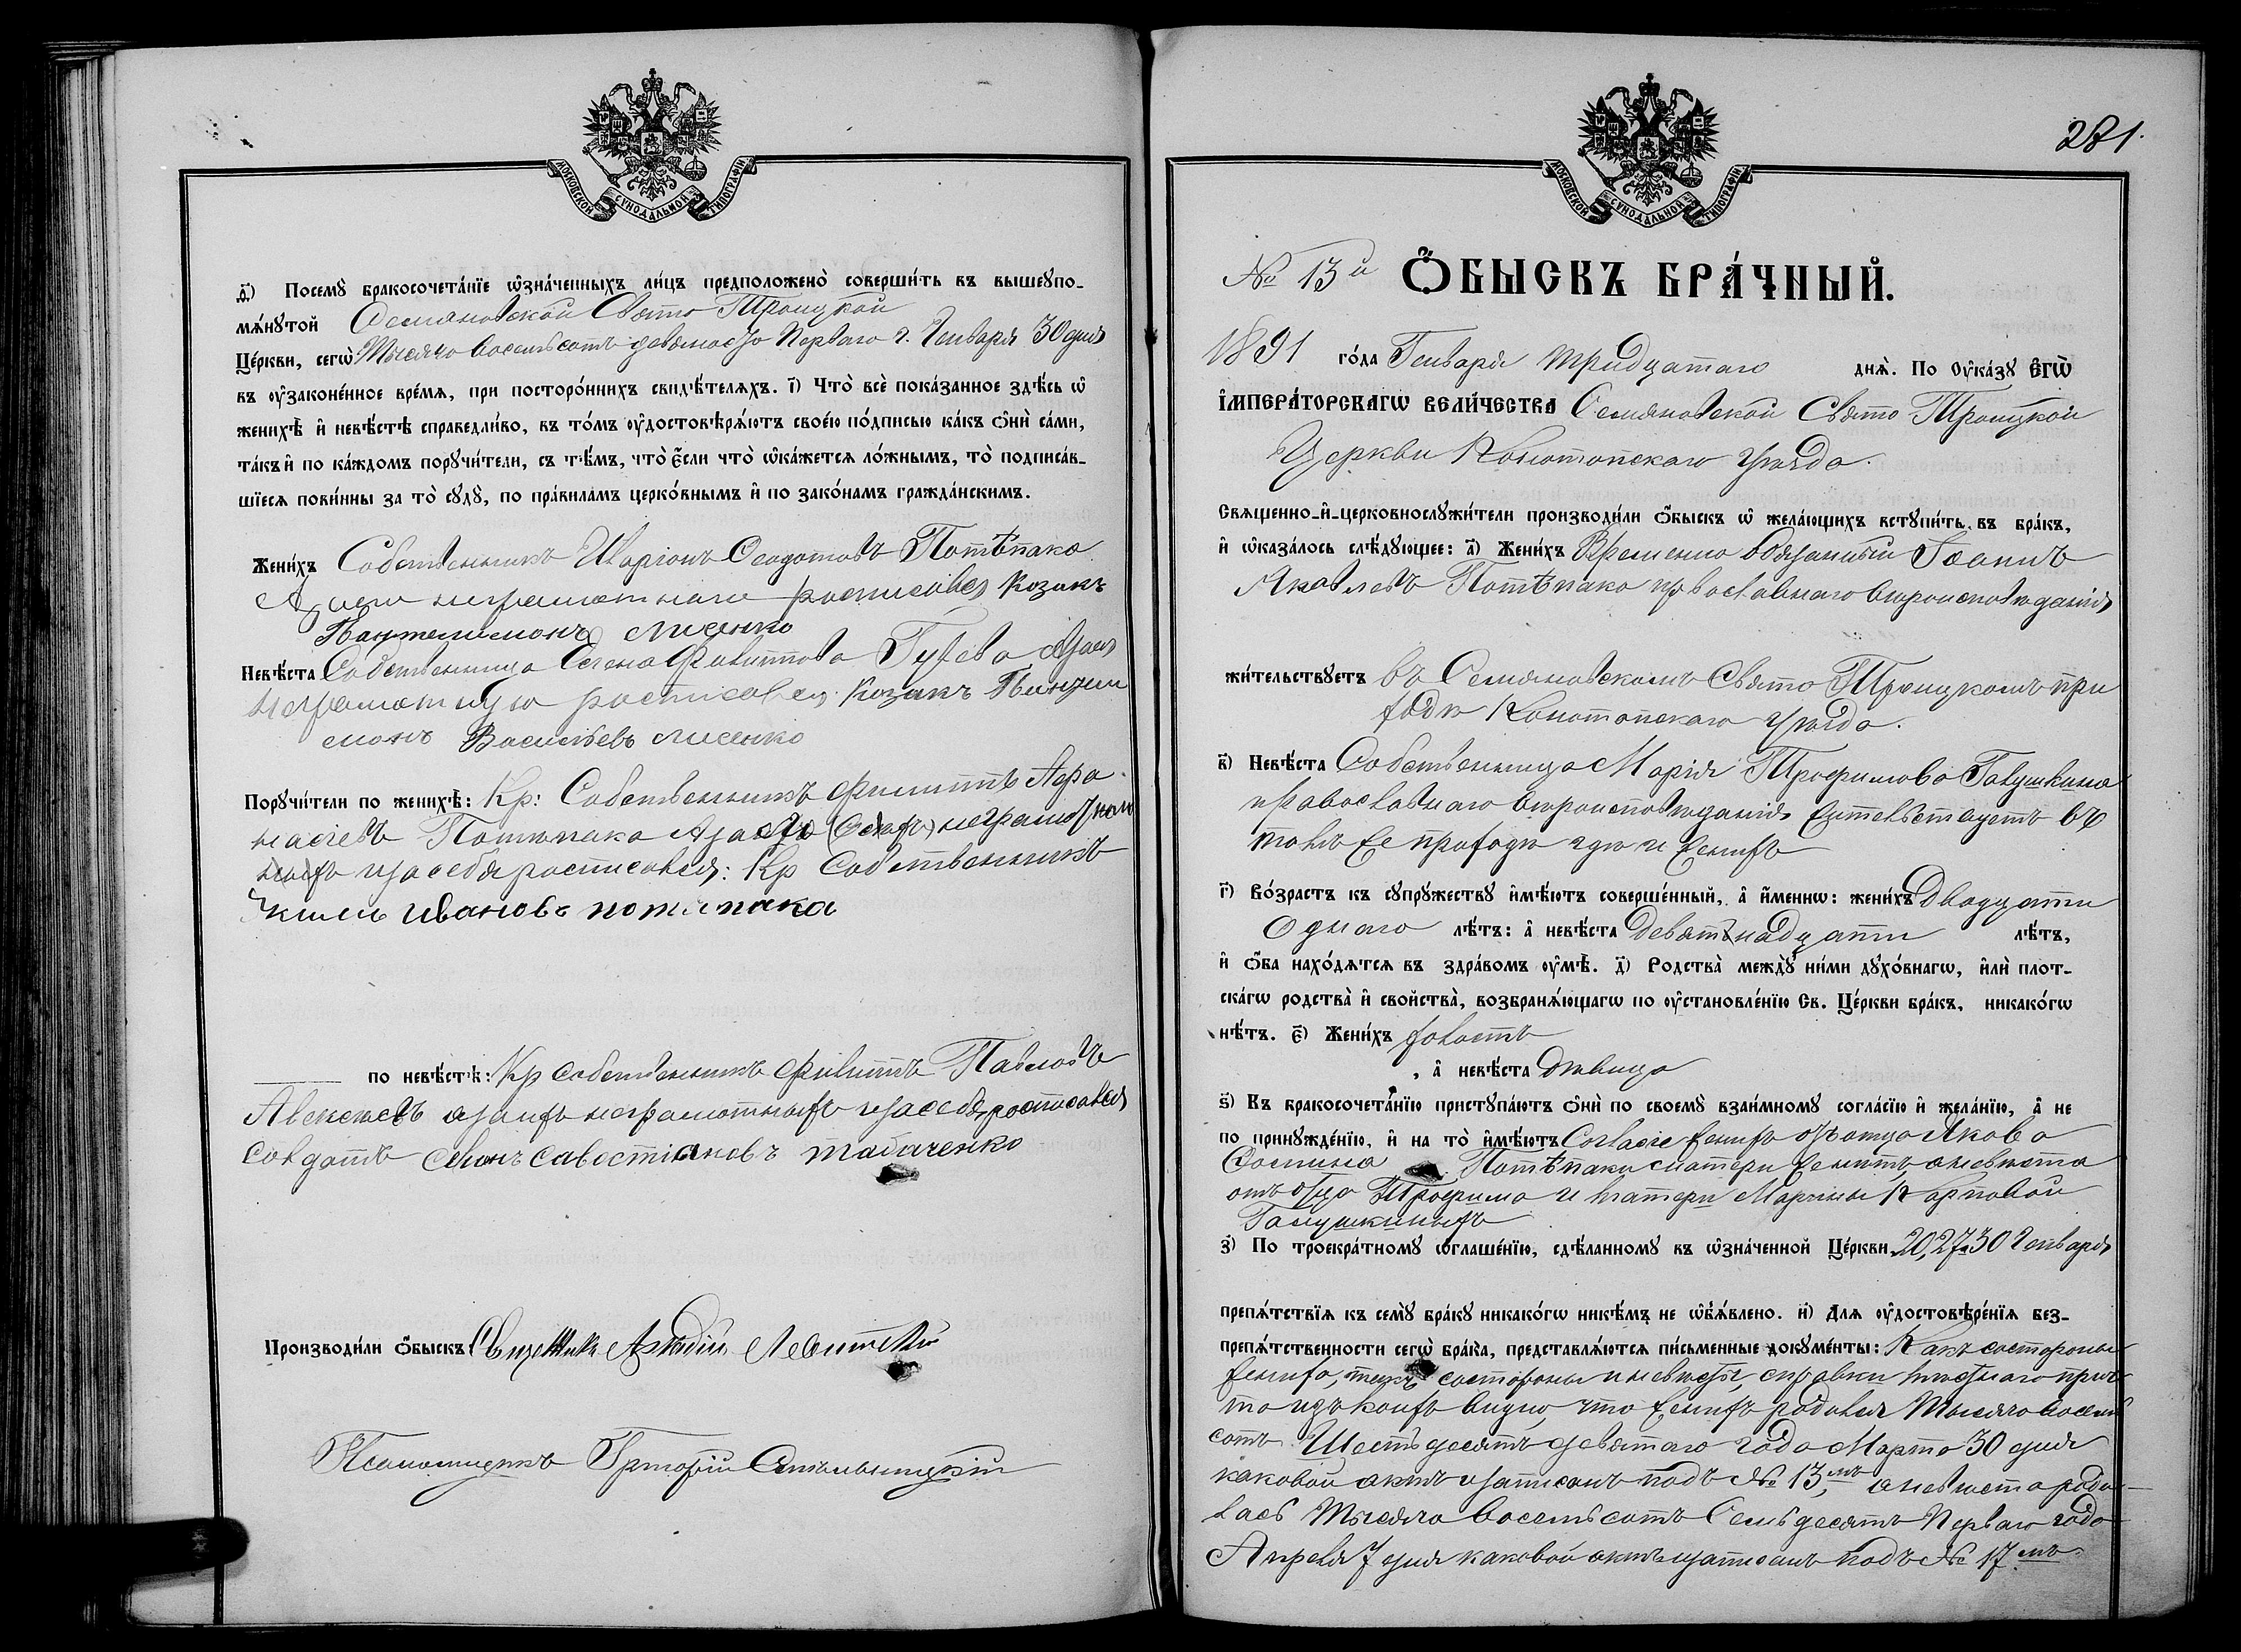 МОСКОВСКОЙ СѴНОДАЛЬНОЙ ТИПОГРАФІИ
д҃) Посемꙋ̀ бракосочета́нїе ѡ҆зна́ченныхъ ли́цъ предположено̀ соверши́ть въ вышеꙋпо-
мѧ́нꙋтой Семяновской Свято Троицкой
Це́ркви, сегѡ̀ Тысяча восемьсотъ девяносто перваго г. Генваря 30 дня
въ ᲂу҆законе́нное вре́мѧ, при посторо́ннихъ свидѣ́телѧхъ. і҃) Что̀ всѐ пока́занное здѣ́сь ѡ҆
женихѣ̀ и҆ невѣ́стѣ справедли́во, въ то́мъ ᲂу҆достовѣрѧ́ютъ свое́ю по́дписью ка́къ ѻ҆нѝ са́ми,
та́къ и҆ по ка́ждомъ порꙋчи́тели, съ тѣ́мъ, что̀ є҆́сли что̀ ѡ҆ка́жетсѧ ло́жнымъ, то̀ подписа́в-
шїесѧ пови́нны за то̀ сꙋдꙋ̀, по пра́виламъ церко́внымъ и҆ по зако́намъ гражда́нскимъ.
Жени́хъ Собственникъ Иларіонъ Феодотовъ Потѣпака
А за его неграмотнаго росписался козакъ
Пантелимонъ Лисенко
Невѣ́ста Собственница Елена Филиппова Гузева а за ея
неграмотную росписался козакъ Пантели
монъ Васильевъ Лисенко
Порꙋчи́тели по женихѣ̀: Кр: Собственникъ Филиппъ Афа
насіевъ Потѣпака А за неграмот
и за себя росписался: Кр Собственникъ
Якимъ Ивановъ потѣпака
по невѣ́стѣ: Кр собственникъ Филиппъ Павловъ
Алексеевъ а за ихъ неграмотныхъ и за себя росписался
Солдатъ Семенъ Савостіановъ Табаченко
Производи́ли ѻ҆́быскъ Священникъ Аркадій Левитскій
Псаломщикъ Григорій
МОСКОВСКОЙ СѴНОДАЛЬНОЙ ТИПОГРАФІИ
281.
№ 13й ѺБЫСКЪ БРА́ЧНЫЙ.
1891 го́да Генваря тридцатаго днѧ̀. По Оука́зꙋ Є҆ГѠ̀
І҆МПЕРА́ТОРСКАГѠ ВЕЛИ́ЧЕСТВА Семяновской Свято Троицкой
Церкви Конотопскаго уѣзда.
Свѧщенно-и҆-церковнослꙋжи́тели производи́ли ѻ҆́быскъ ѡ҆ жела́ющихъ встꙋпи́ть въ бра́къ,
и҆ ѡ҆каза́лось слѣ́дꙋющее: а҃) Жени́хъ Временно обязанный Іоаннъ
Яковлевъ Потѣпака православнаго вѣроисповѣданія
жи́тельствꙋетъ въ Семяновскомъ Свято Троицкомъ при
ходѣ Конотопскаго уѣзда.
в҃) Невѣ́ста Собственница Марія Трофимова Галушкина
православнаго вѣроисповѣданія жительствуетъ въ
томъ же приходѣ гдѣ и женихъ
г҃) Во́зрастъ къ сꙋпрꙋ́жествꙋ и҆мѣ́ютъ соверше́нный, а҆ и҆́меннѡ: жени́хъ Двадцати
Одного лѣ́тъ: а҆ невѣ́ста Девятьнадцати лѣ́тъ,
и҆ ѻ҆́ба нахо́дѧтсѧ въ здра́вомъ ᲂу҆мѣ̀. д҃) Родства̀ междꙋ̀ ни́ми дꙋхо́внагѡ, и҆лѝ плот-
ска́гѡ родства̀ и҆ свойства̀, возбранѧ́ющагѡ по ᲂу҆становле́нїю Св. Це́ркви бра́къ, никако́гѡ
нѣ́тъ. є҃) Жени́хъ холостъ
, а҆ невѣ́ста дѣвица
ѕ҃) Къ бракосочета́нїю пристꙋпа́ютъ ѻ҆нѝ по своемꙋ̀ взаи́мномꙋ согла́сїю и҆ жела́нїю, а҆ не
по принꙋжде́нїю, и҆ на то̀ и҆мѣ́ютъ Согласіе женихъ отъ отца Якова
Фомина Потѣпаки а невѣста
отъ отца Трофима и матери Марины Карповой
Галушкиныхъ
з҃) По троекра́тномꙋ ѡ҆глаше́нїю, сдѣ́ланномꙋ въ ѡ҆зна́ченной Це́ркви 20, 27 и 30 Генваря
препѧ́тствїѧ къ семꙋ̀ бра́кꙋ никако́гѡ никѣ́мъ не ѡ҆б̾ѧ́влено. и҃) Длѧ ᲂу҆достовѣре́нїѧ без-
препѧ́тственности сегѡ̀ бра́ка, представлѧ́ютсѧ пи́сьменные докꙋме́нты: Какъ со стороны
жениха, такъ со стороны и невѣсты, справки мѣстнаго прич
та изъ коихъ видно, что женихъ родился Тысяча восемь
сотъ Шестьдесятъ девятаго года Марта 30 дня
каковой актъ записанъ подъ № 13,мъ а невѣста роди-
лась Тысяча восемьсотъ Семьдесятъ перваго года
Апреля 7 дня каковой актъ записанъ подъ № 17 мъ.